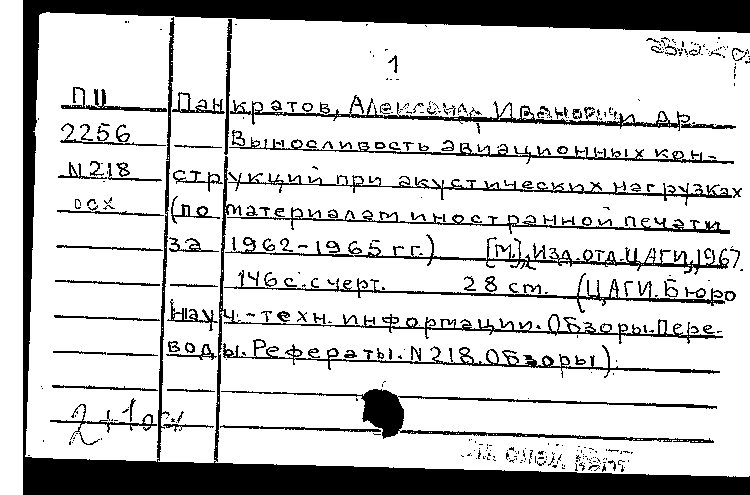 1
ПII Панкратов, Александр Иванович и др.
2256 Выносливость авиационных кон-
N218 струкций при акустических нагрузках
осх (по материалам иностранной печати
за 1962-1965 гг.) [М.], Изд. отд. ЦАГИ, 1967.
146 с. с черт. 28 cm. (ЦАГИ. Бюро
науч.-техн. информации. Обзоры. Пере-
воды. Рефераты. N218. Обзоры)
2+1 осх